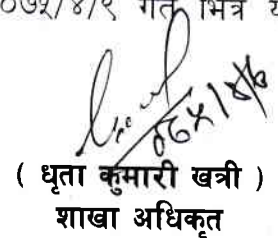 ०७५/४/९ गते भित्र
( धृता कुमारी खत्री )
शाखा अधिकृत